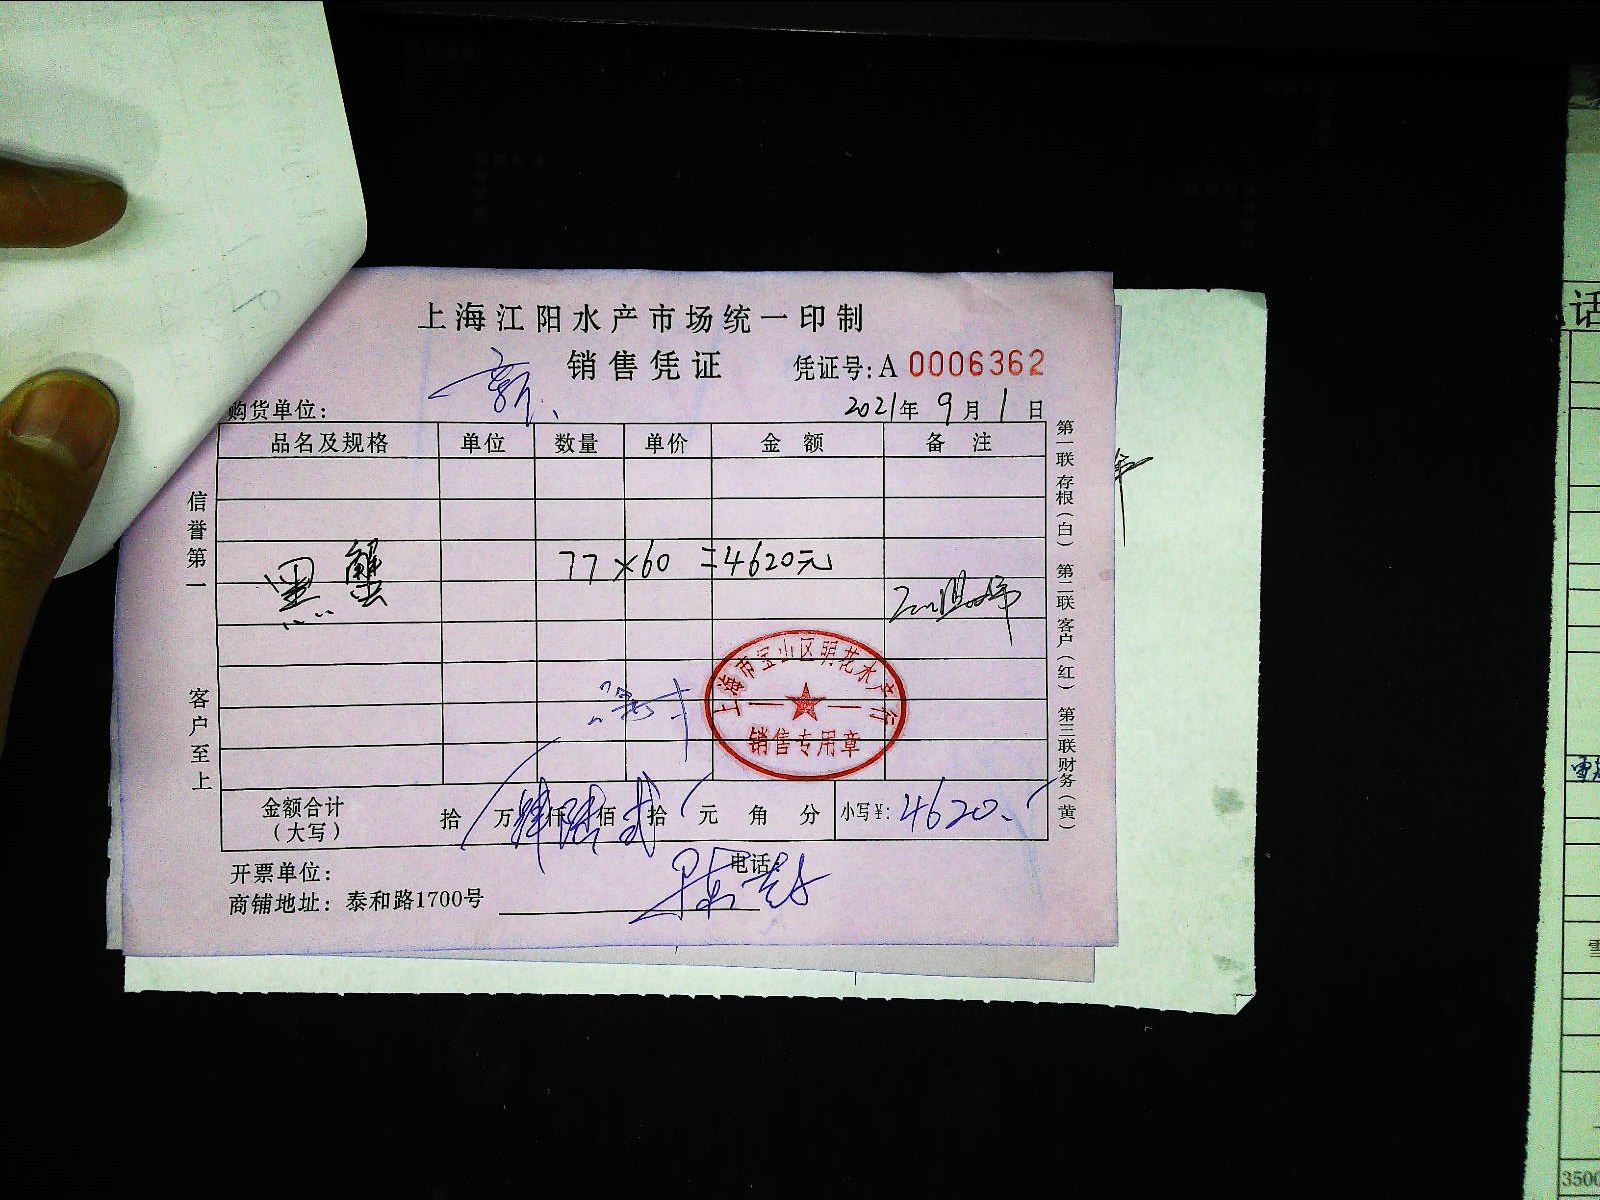 上海江阳水产市场统一印制
销售凭证
凭证号:A 0006362
购货单位:
2021年 9月 1日
品名及规格 单位 数量 单价 金额 备注
黑蟹 77×60=4620元
上海市宝山区明花水产行
销售专用章
金额合计
(大写)
拾 万 肆仟 陆佰 贰拾 元 角 分 小写¥: 4620.
开票单位:
电话:
商铺地址: 泰和路1700号
信誉第一
客户至上
第一联存根(白) 第二联客户(红) 第三联财务(黄)
话
3500